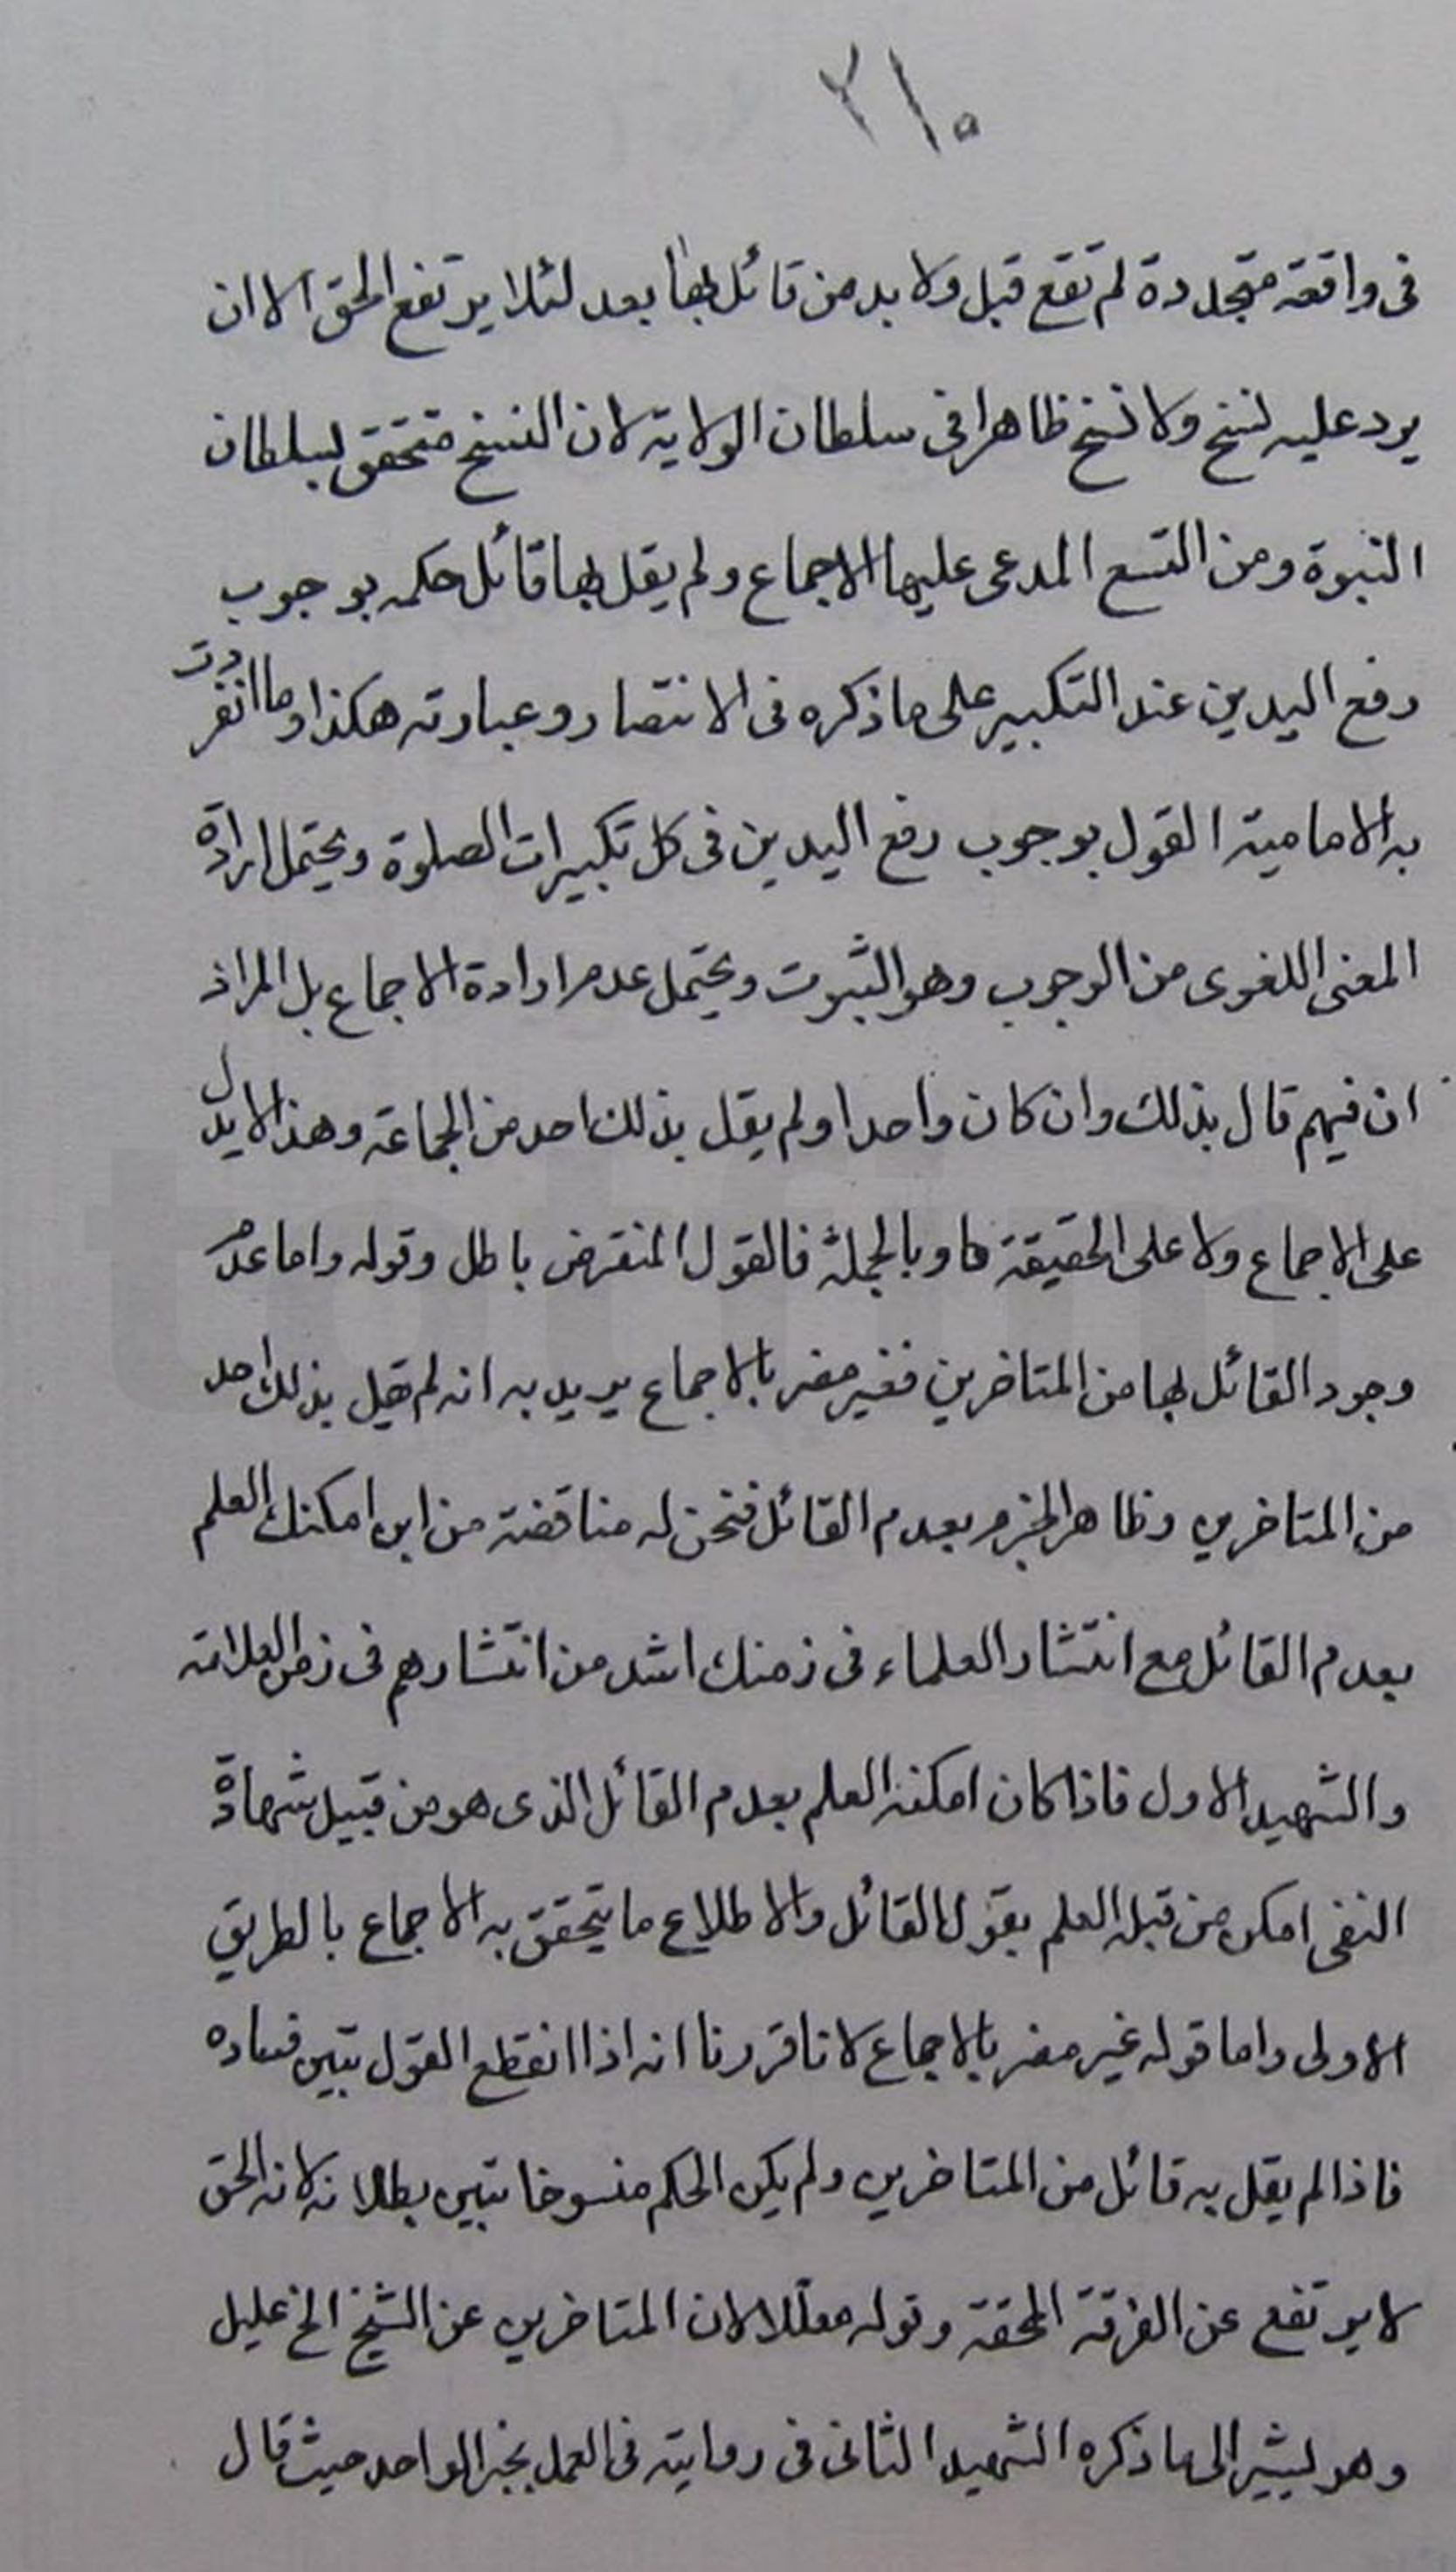 ٢١٠
فى واقعة متجددة لم تقع قبل ولا بد من قائل بها بعد لئلا يرتفع الحق الا ان
يرد عليه نسخ ولا نسخ ظاهرا فى سلطان الولاية لان النسخ متحقق لسلطان
النبوة ومن التسع المدعى عليها الاجماع ولم يقل بها قائل حكمه بوجوب
رفع اليدين عند التكبير على ما ذكره فى الانتصار وعبارته هكذا وما انفردت
به الامامية القول بوجوب رفع اليدين فى كل تكبيرات الصلوة ويحتمل ارادة
المعنى اللغوى من الوجوب وهو الثبوت ويحتمل عدم ارادة الاجماع بل المراد
ان فيهم قال بذلك وان كان واحدا ولم يقل بذلك احد من الجماعة وهذا لا يدل
على الاجماع ولا على الحقيقة وبالجملة فالقول المنقرض باطل وقوله واما عدم
وجود القائل بها من المتاخرين فغير مضر بالاجماع يريد به انه لم يقل بذلك احد
من المتاخرين وظاهر الجزم بعدم القائل فنحن له مناقضة من اين امكنك العلم
بعدم القائل مع انتشار العلماء فى زمنك اشد من انتشارهم فى زمن العلامة
والشهيد الاول فاذا كان امكنه العلم بعدم القائل الذى هو من قبيل شهادة
النفى امكن من قبله العلم بقول القائل والاطلاع ما يتحقق به الاجماع بالطريق
الاولى واما قوله غير مضر بالاجماع لانا قررنا انه اذا انقطع القول تبين فساده
فاذا لم يقل به قائل من المتاخرين ولم يكن الحكم منسوخا تبين بطلانه لانه الحق
لا يرتفع عن الفرقة المحقة وقوله معللا لان المتاخرين عن الشيخ الخ عليل
وهو يشير الى ما ذكره الشهيد الثانى فى روايته فى العمل بخبر الواحد حيث قال